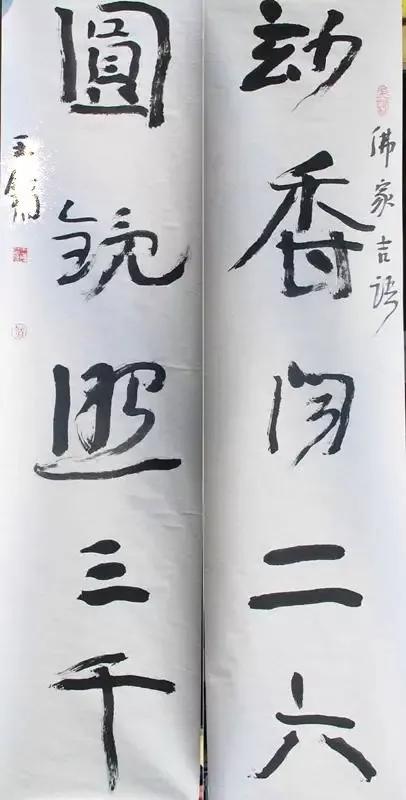 佛家吉语
玅香闻二六
圓镜照三千
王镛